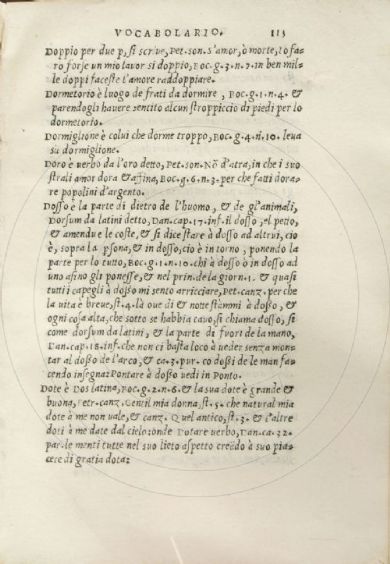 VOCABOLARIO. 113
Doppio per due p, si scrive, Pet. son. S'amor, ò morte, to fa-
ro forse un mio lavor si doppio, Boc. g. 3. n. 7. in ben mil-
le doppi faceste l'amore raddoppiare.
Dormetorio è luogo de frati da dormire, Boc. g. 1. n. 4. &
parendogli havere sentito alcun stroppiccio di piedi per lo
dormetorio.
Dormiglione è colui che dorme troppo, Boc. g. 4. n. 10. leva
su dormiglione.
Doro è verbo da l'oro detto, Pet. son. Nõ d'atra, in che i suo
strali amor dora & affina, Boc. g. 6. n. 3. per che fatti dora-
re popolini d'argento.
Dosso è la parte di dietro de l'huomo, & de gl'animali,
Dorsum da latini detto, Dan. cap. 17. inf. il dosso, el petto,
& amendue le coste, & si dice stare à dosso ad altrui, cio
è, sopra la psona, & in dosso, cio è in torno, ponendo la
parte per lo tutto, Boc. g. 1. n. 10. chi à dosso ò in dosso ad
uno asino gli ponesse, & nel prin. de la giorn. 1. & quasi
tutti i capegli à dosso mi sento arricciare, Pet. canz. per che
la vita è breve, st. 4. là oue dì & notte stammi à dosso, &
ogni cosa alta, che sotto se habbia cavo, si chiama dosso, si
come dorsum da latini, & la parte di fuori de la mano,
Dan. cap. 18. inf. che non ci basta loco à veder senza mon-
tar al dosso de l'arco, & ca. 3. pur. co dossi de le man fa-
cendo insegna: Pontare à dosso vedi in Ponto.
Dote è Dos latina, Boc. g. 2. n. 6. & la sua dote è grande &
buona, Petr. canz. Gentil mia donna, st. 5. che natural mia
dote à me non vale, & canz. Quel antico, st. 3. & l'altre
doti à me date dal cielo: onde Dotare verbo, Dan. ca. 22.
par. le menti tutte nel suo lieto aspetto creãdo à suo pia-
cere di gratia dota: